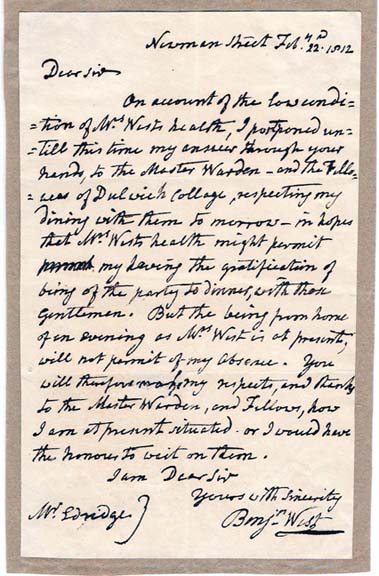 Newman Street Feb.ry 22.d 1812
Dear Sir
On account of the low condi-
=tion of Mrs Wests health, I postponed un-
=till this time my answer through your
hands, to the Master Warden - and the Fello-
=wes of Dulwich Collage, respecting my
dining with them to morrow - in hopes
that Mrs Wests health might permit
my having the gratification of
being of the party to dinner, with those
Gentlemen. But the being from home
of an evening as Mrs West is at present,
will not permit of my absence. You
will therefore make my respects, and thanks
to the Master Warden, and Fellows, how
I am at present situated - or I would have
the honour to wait on them.
I am Dear Sir
Yours with Sincerity
Mr. Edridge} Benjn West